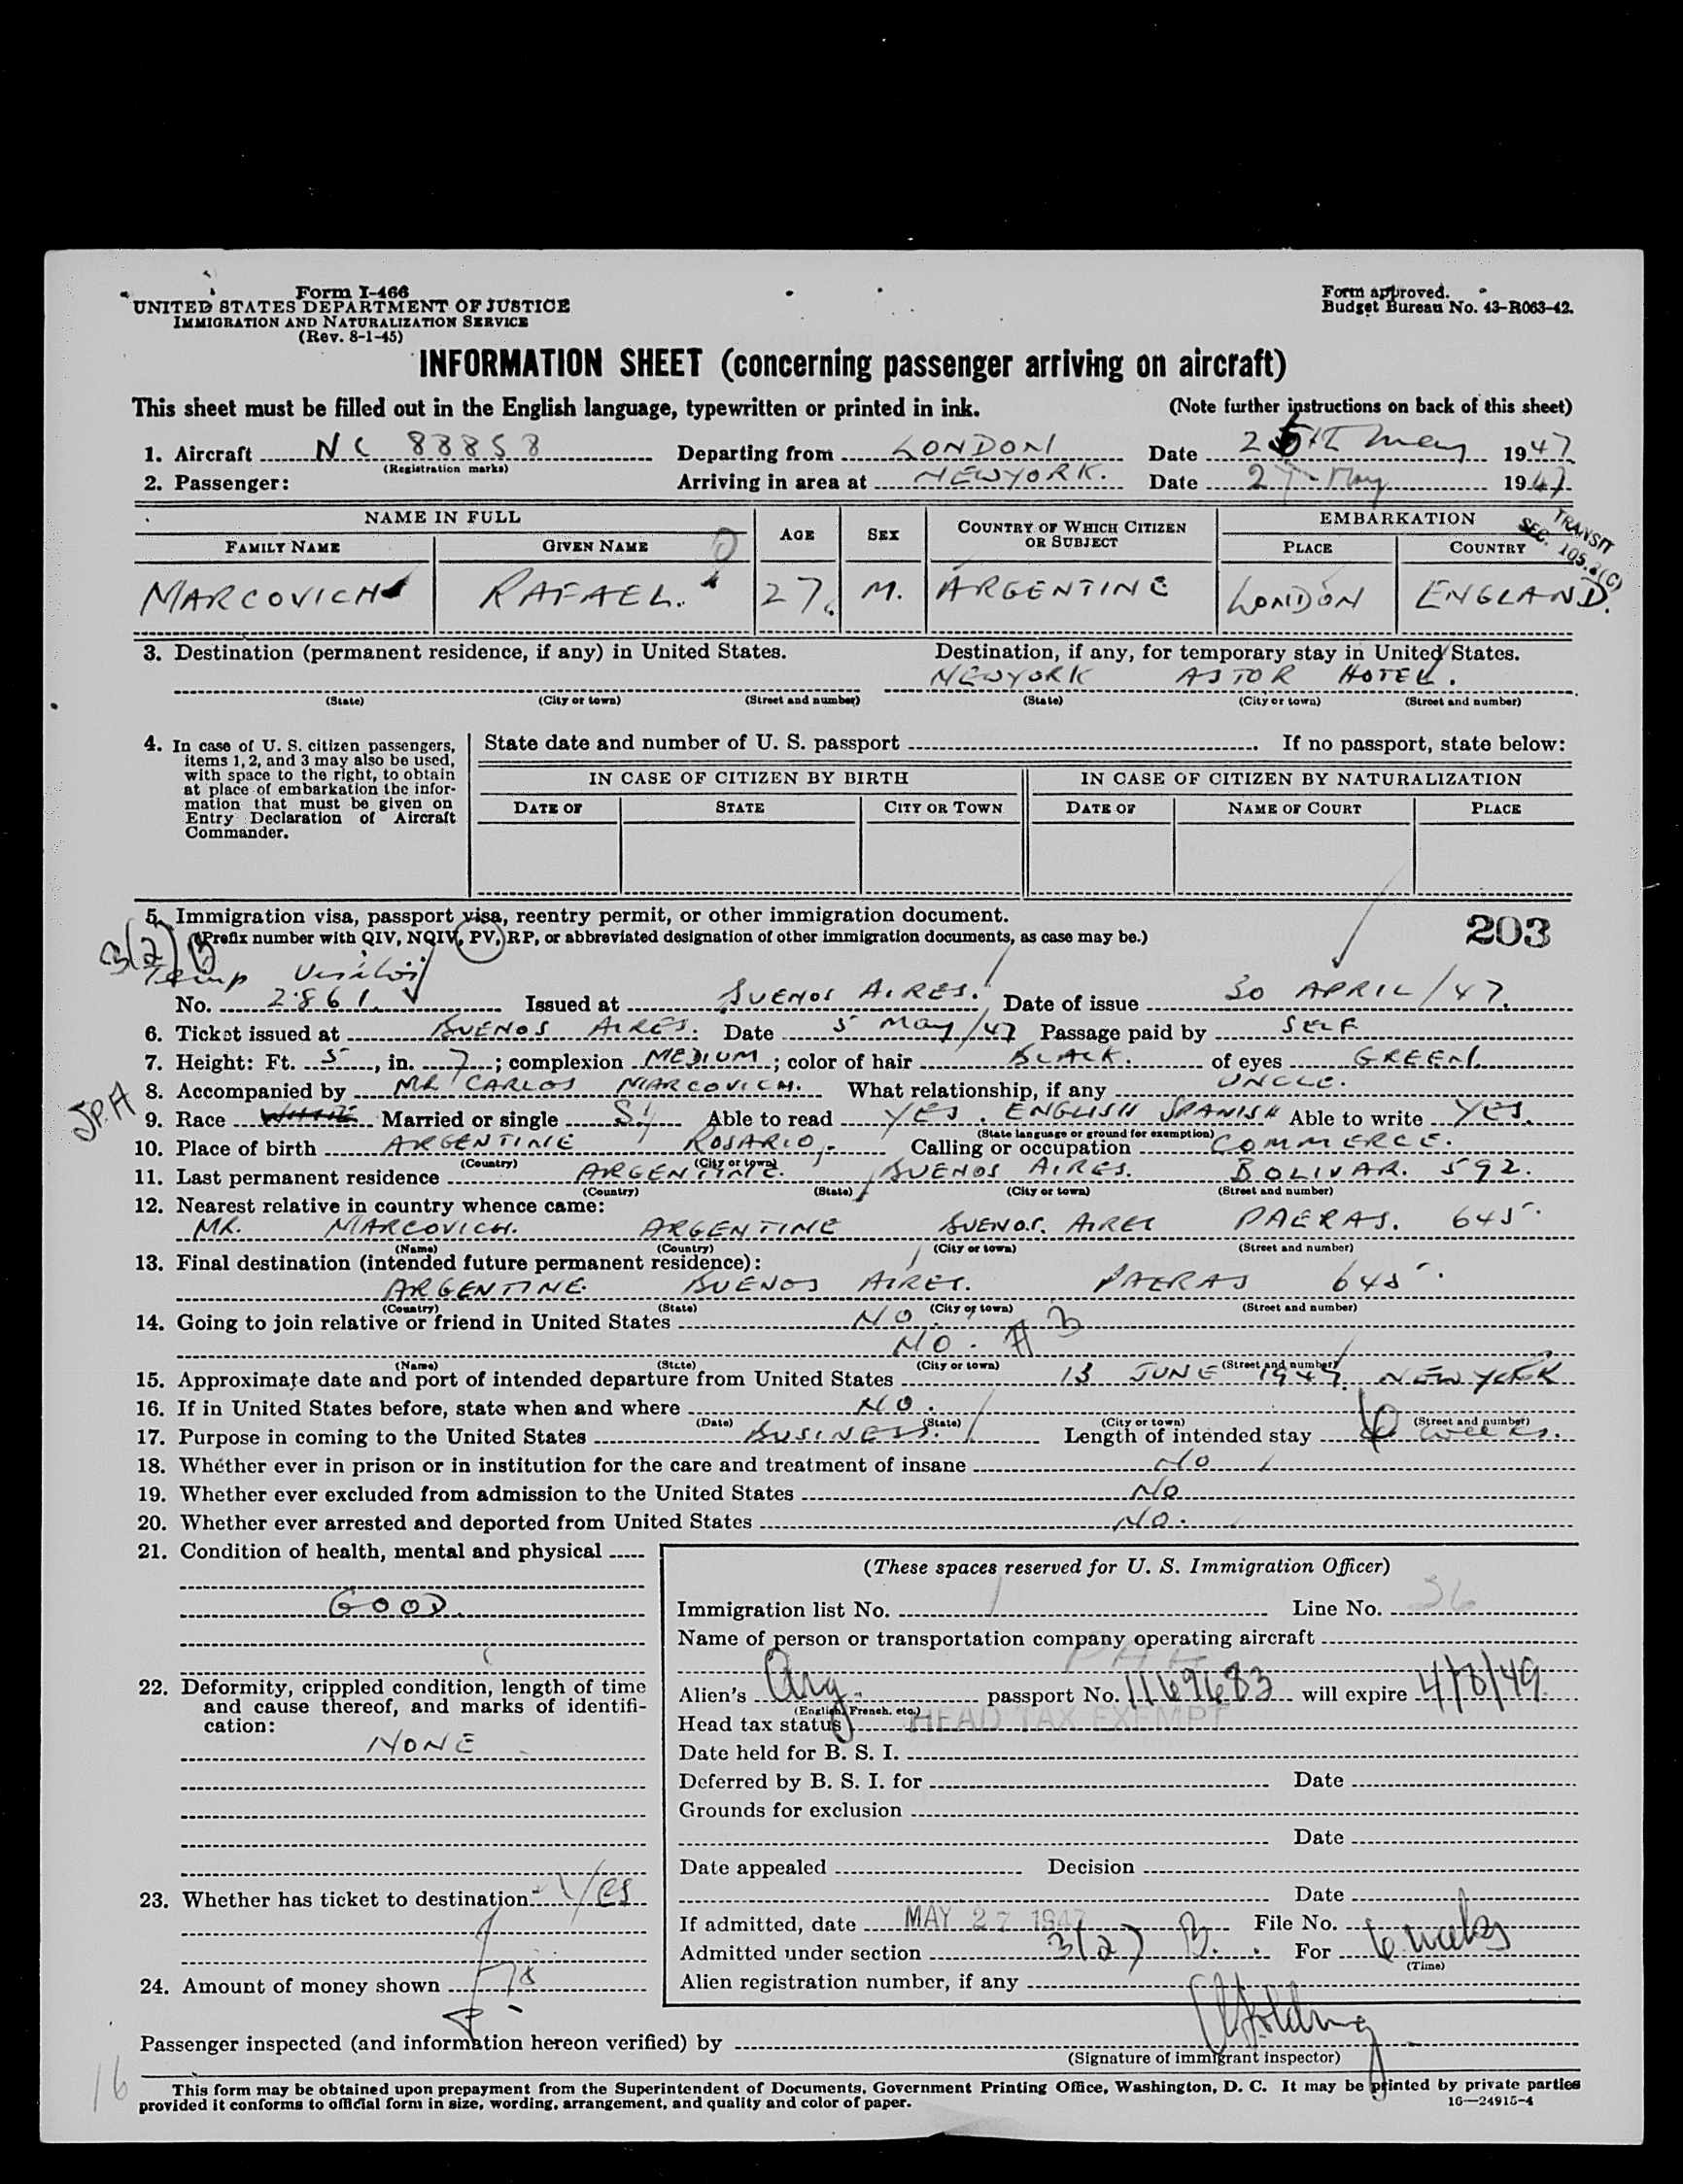 Form I-466
UNITED STATES DEPARTMENT OF JUSTICE
IMMIGRATION AND NATURALIZATION SERVICE
(Rev. 8-1-45)
Form approved.
Budget Bureau No. 43-R063-42.
INFORMATION SHEET (concerning passenger arriving on aircraft)
This sheet must be filled out in the English language, typewritten or printed in ink. (Note further instructions on back of this sheet)
1. Aircraft NC 88858 Departing from LONDON Date 25TH May 1947
(Registration marks)
2. Passenger: Arriving in area at NEWYORK. Date 27 May 1947
NAME IN FULL AGE SEX COUNTRY OF WHICH CITIZEN OR SUBJECT EMBARKATION
FAMILY NAME GIVEN NAME PLACE COUNTRY
TRANSIT
SEC. 105.3(C)
MARCOVICH RAFAEL. 27. M. ARGENTINE LONDON ENGLAND.
3. Destination (permanent residence, if any) in United States. Destination, if any, for temporary stay in United States.
NEWYORK ASTOR HOTEL.
(State) (City or town) (Street and number) (State) (City or town) (Street and number)
4. In case of U. S. citizen passengers, items 1, 2, and 3 may also be used, with space to the right, to obtain at place of embarkation the information that must be given on Entry Declaration of Aircraft Commander.
State date and number of U. S. passport If no passport, state below:
IN CASE OF CITIZEN BY BIRTH IN CASE OF CITIZEN BY NATURALIZATION
DATE OF STATE CITY OR TOWN DATE OF NAME OF COURT PLACE
5. Immigration visa, passport visa, reentry permit, or other immigration document.
(Prefix number with QIV, NQIV, PV, RP, or abbreviated designation of other immigration documents, as case may be.)
203
3(2)
Temp Visitor
No. 2861 Issued at BUENOS AIRES. Date of issue 30 APRIL/47.
6. Ticket issued at BUENOS AIRES. Date 5 May/47 Passage paid by SELF
7. Height: Ft. 5, in. 7; complexion MEDIUM; color of hair BLACK. of eyes GREEN.
8. Accompanied by MR CARLOS MARCOVICH. What relationship, if any UNCLE.
SP.A
9. Race WHITE Married or single S. Able to read YES. ENGLISH SPANISH Able to write YES.
(State language or ground for exemption)
10. Place of birth ARGENTINE ROSARIO,- Calling or occupation COMMERCE.
(Country) (City or town)
11. Last permanent residence ARGENTINE. BUENOS AIRES. BOLIVAR. 592.
(Country) (State) (City or town) (Street and number)
12. Nearest relative in country whence came:
MR. MARCOVICH. ARGENTINE BUENOS. AIRES PAERAS. 645.
(Name) (Country) (City or town) (Street and number)
13. Final destination (intended future permanent residence):
ARGENTINE BUENOS AIRES. PAERAS 645.
(Country) (State) (City or town) (Street and number)
14. Going to join relative or friend in United States NO.
NO.
(Name) (State) (City or town) (Street and number)
15. Approximate date and port of intended departure from United States 13 JUNE 1947. NEW YORK
16. If in United States before, state when and where NO.
(Date) (State) (City or town) (Street and number)
17. Purpose in coming to the United States BUSINESS. Length of intended stay 6 weeks.
18. Whether ever in prison or in institution for the care and treatment of insane NO
19. Whether ever excluded from admission to the United States NO
20. Whether ever arrested and deported from United States NO.
21. Condition of health, mental and physical
GOOD.
22. Deformity, crippled condition, length of time and cause thereof, and marks of identification:
NONE
23. Whether has ticket to destination YES
24. Amount of money shown
(These spaces reserved for U. S. Immigration Officer)
Immigration list No. 1 Line No. 36
Name of person or transportation company operating aircraft
PAA
Alien's Arg. passport No. 1169683 will expire 4/8/49
(English, French, etc.)
Head tax status HEAD TAX EXEMPT
Date held for B. S. I.
Deferred by B. S. I. for Date
Grounds for exclusion
Date
Date appealed Decision
Date
If admitted, date MAY 27 1947 File No.
Admitted under section 3(2) B. For 6 weeks
(Time)
Alien registration number, if any
Passenger inspected (and information hereon verified) by
(Signature of immigrant inspector)
16
This form may be obtained upon prepayment from the Superintendent of Documents, Government Printing Office, Washington, D. C. It may be printed by private parties
provided it conforms to official form in size, wording, arrangement, and quality and color of paper.
16—24915-4